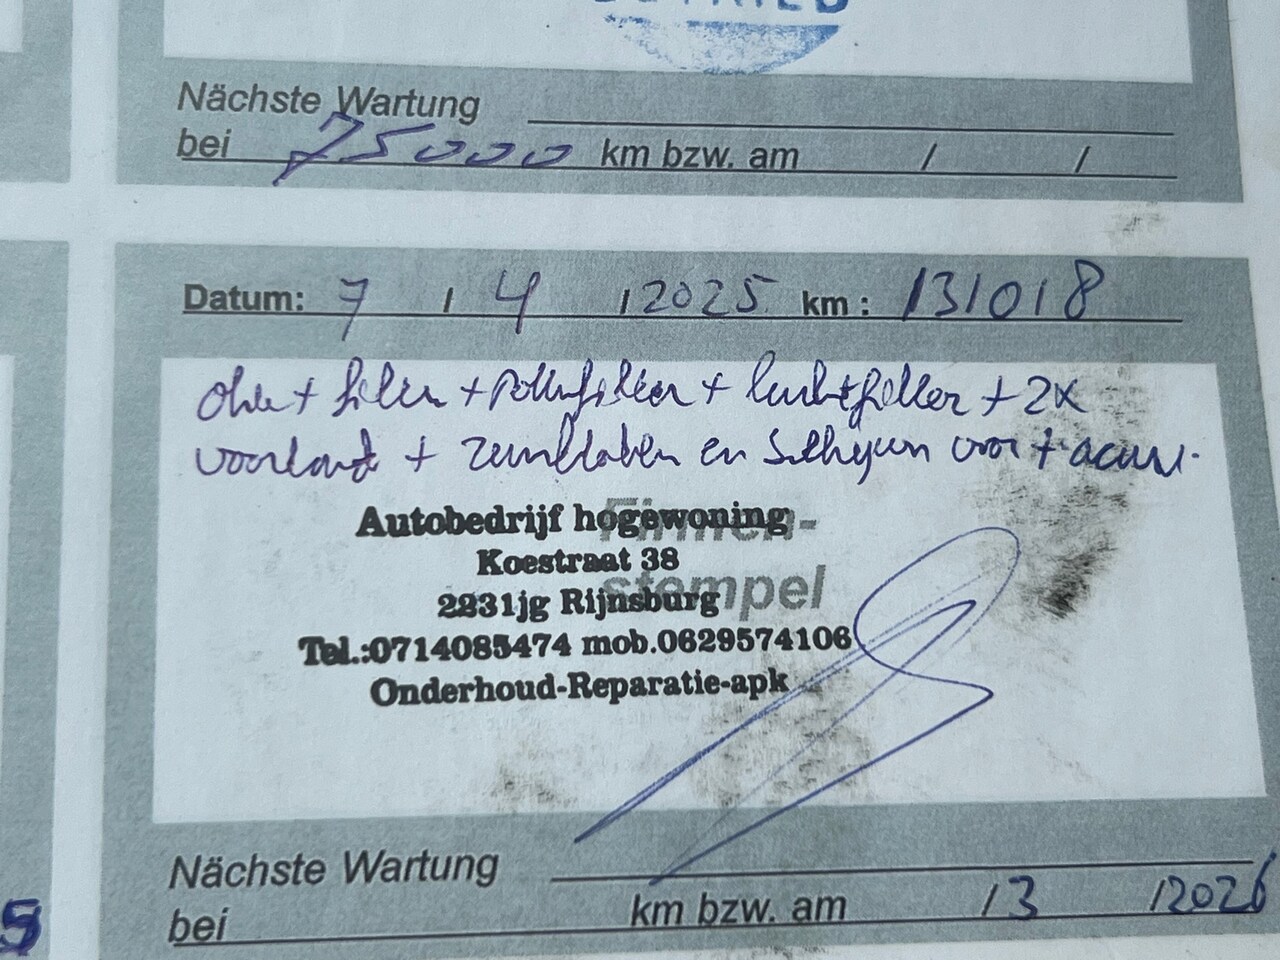 Nächste Wartung
bei 75000 km bzw. am / /
Datum: 7 / 4 / 2025 km: 131018
olie + filter + Pollenfilter + luchtfilter + 2x
voorband + remblokken en schijven voor + accu.
Firmen-
stempel
Autobedrijf hogewoning
Koestraat 38
2231jg Rijnsburg
Tel.:0714085474 mob.0629574106
Onderhoud-Reparatie-apk
Nächste Wartung
bei km bzw. am / 3 / 2026
5